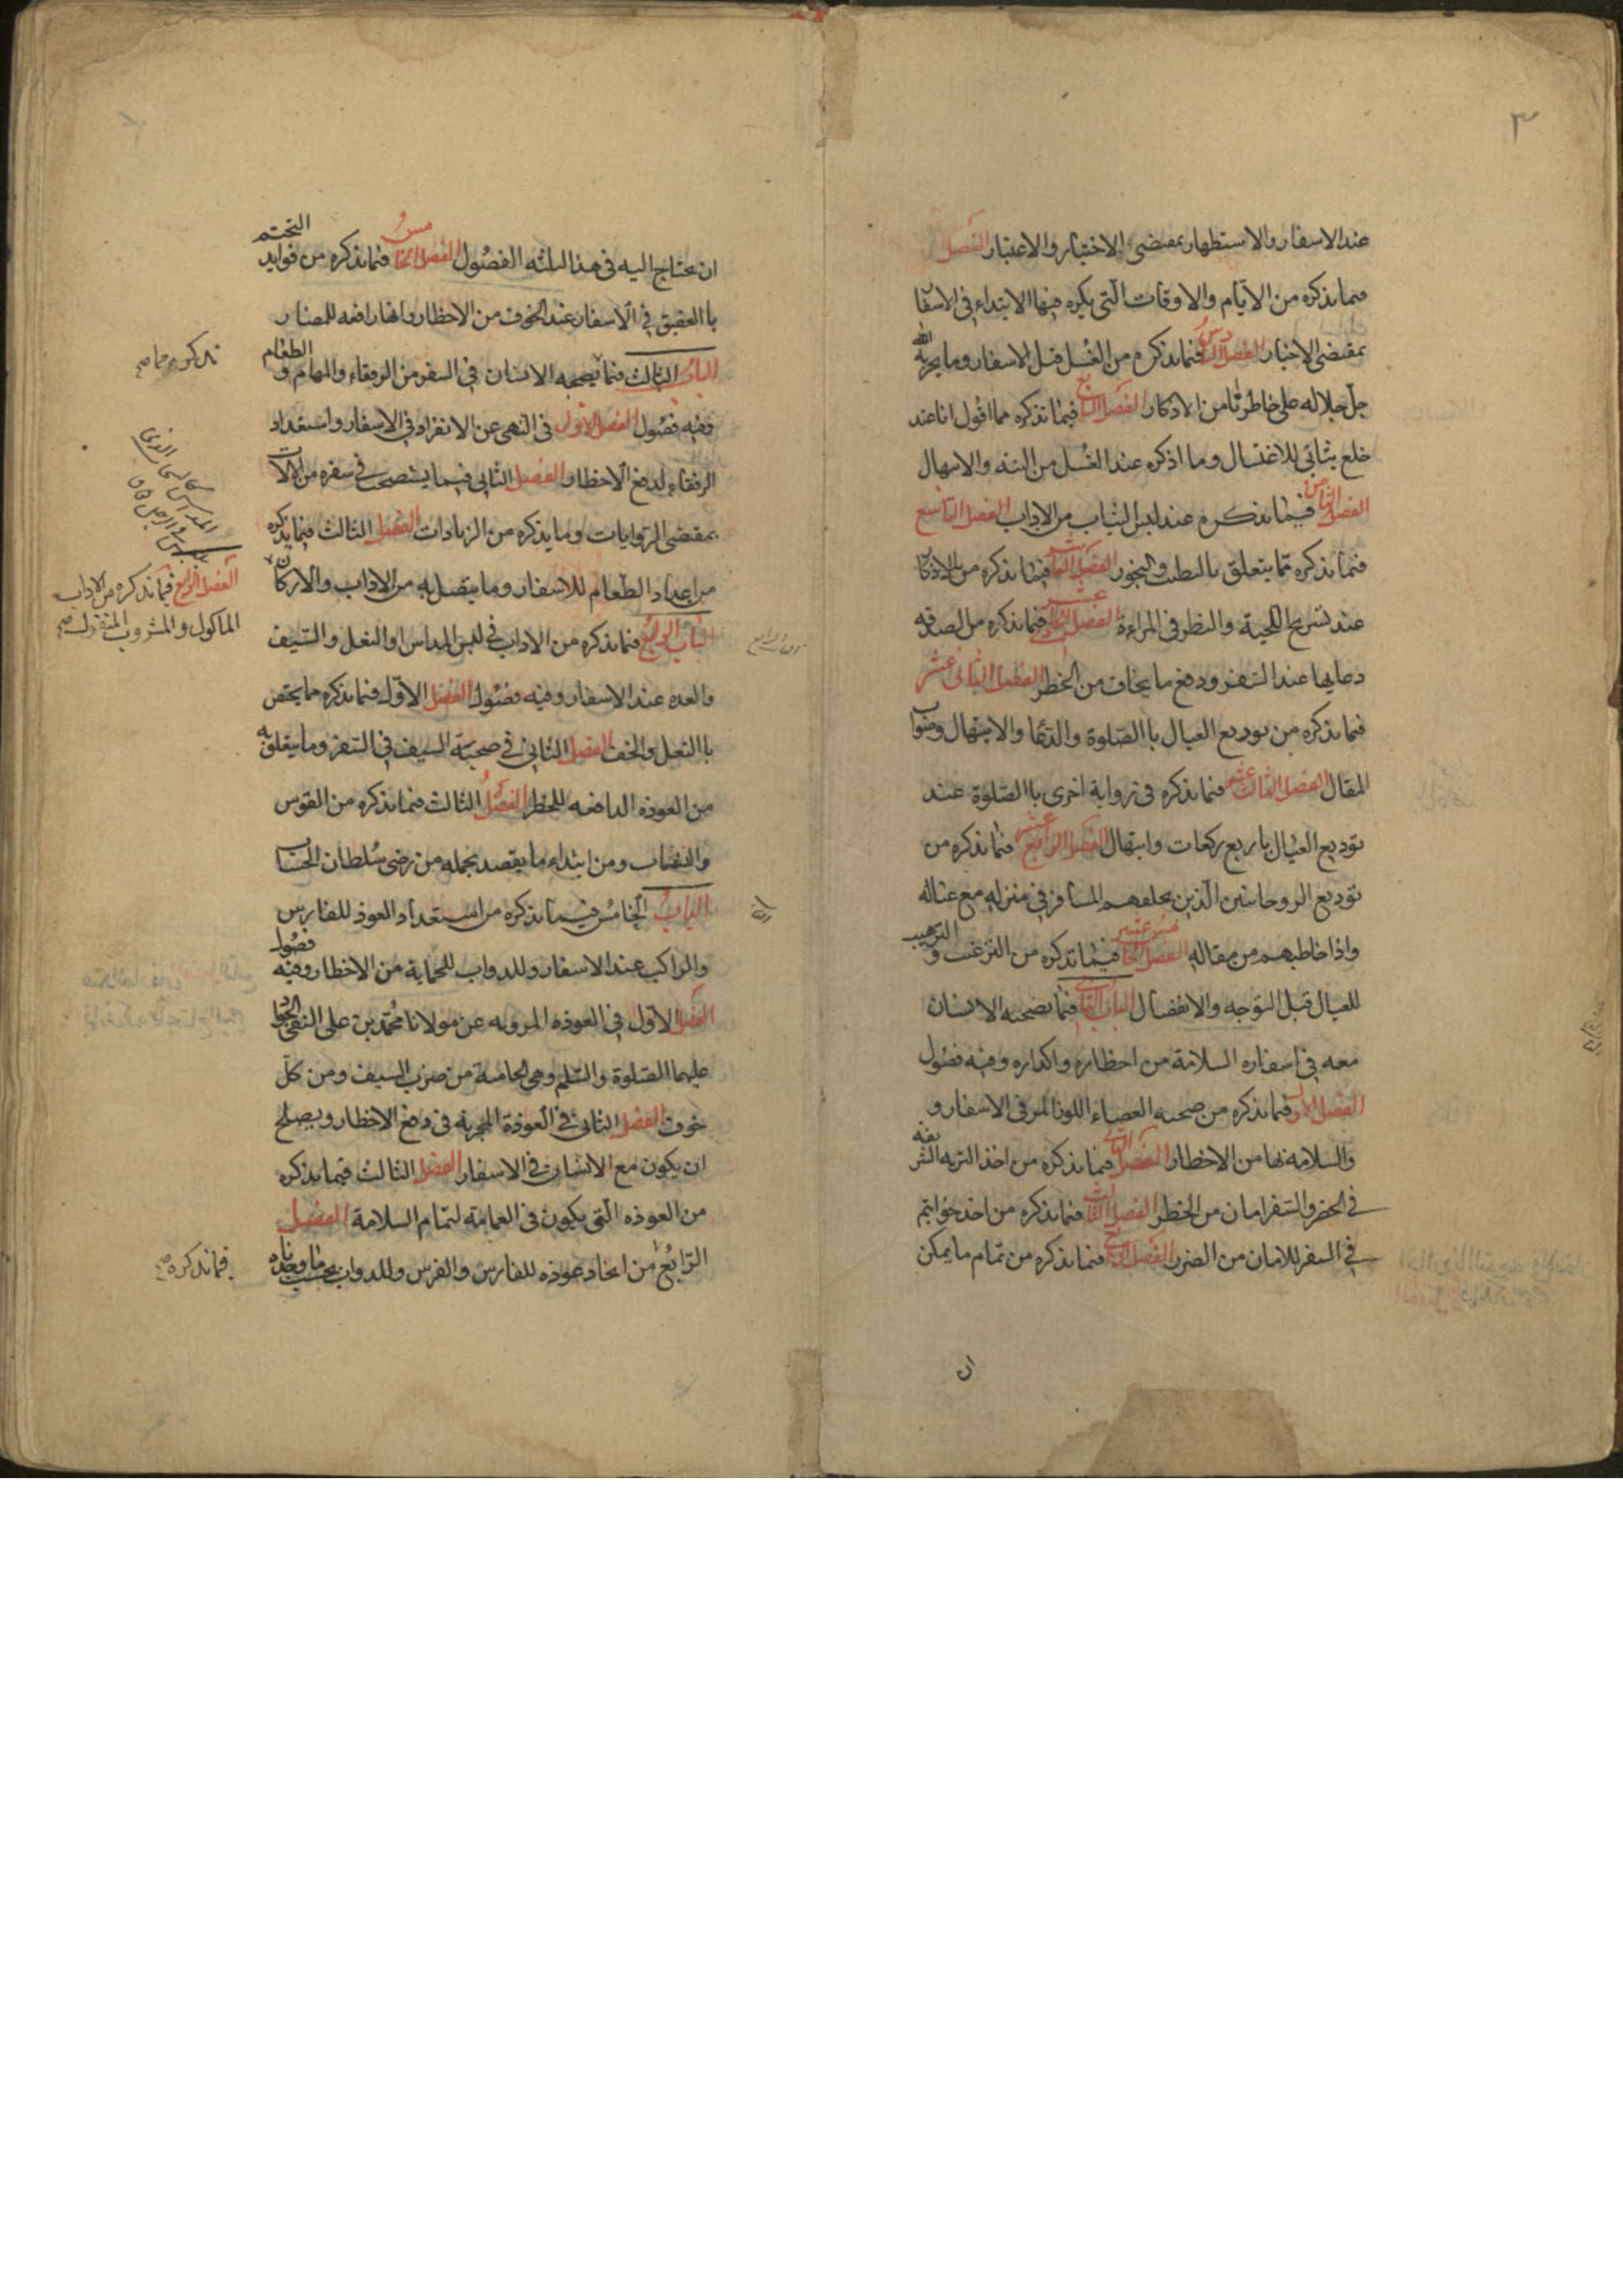 ٣
عند الاسفار والاستظهار بمقتضى الاختيار والاعتبار الفصل
فيما نذكره من الايام والاوقات التى يكره فيها الابتداء فى الاسفار
بمقتضى الاخبار الفصل السادس فيما نذكره من الغسل قبل الاسفار وما يجريه الله
جل جلاله على خاطرنا من الاذكار الفصل السابع فيما نذكره مما اقول انا عند
خلع ثيابى للاغتسال وما اذكره عند الغسل من النية والابتهال
الفصل الثامن فيما نذكره عند لبس الثياب من الاداب الفصل التاسع
فيما نذكره مما يتعلق بالتطيب والبخور الفصل العاشر فيما نذكره من الاذكار
عند تسريح اللحية والنظر فى المراءة الفصل الحادى عشر فيما نذكره من الصدقه
دعايها عند السفر ودفع ما يخاف من الخطر الفصل الثانى عشر
فيما نذكره من توديع العيال با الصلوة والدعا والابتهال وصواب
المقال الفصل الثالث عشر فيما نذكره فى رواية اخرى با الصلوة عند
توديع العيال باربع ركعات وابتهال الفصل الرابع عشر فيما نذكره من
توديع الروحانيين الذين يخلفهم المسافر فى منزله مع عياله
واذا خاطبهم من مقاله الفصل الخامس عشر فيما نذكره من الترغيب والترهيب
للعيال قبل التوجه والانفصال الباب الثانى فيما يصحبه الانسان
معه فى اسفاره السلامة من اخطاره واكداره وفيه فصول
الفصل الاول فيما نذكره من صحبه العصاء اللوز المر فى الاسفار و
والسلامه بها من الاخطار الفصل الثانى فيما نذكره من اخذ التربه الشريفه
فى الحضر والسفر امان من الخطر الفصل الثالث فيما نذكره من اخذ خواتيم
فى السفر للامان من الضرر الفصل الرابع فيما نذكره من تمام ما يمكن
ان
ان يحتاج اليه فى هذا الثلثه الفصول الفصل الخامس فيما نذكره من فوايد التختم
با العقيق فى الاسفار عند الخوف من الاخطار وانها رافعه للمضار
الباب الثالث فيما يصحبه الانسان فى السفر من الرفقاء والمهام والطعام
ففيه فصول الفصل الاول فى النهى عن الانفراد فى الاسفار واستعداد
الرفقاء لدفع الاخطار الفصل الثانى فيما يستصحب فى سفره من الالات
بمقتضى الروايات وما يذكره من الزيادات الفصل الثالث فيما نذكره
من اعداد الطعام للاسفار وما يتصل به من الاداب والاركان
الفصل الرابع فيما نذكره من الاداب
الماكول والمشروب المنقول صح
الباب الرابع فيما نذكره من الاداب فى لبس المداس او النعل والسيف
والعده عند الاسفار وفيه فصول الفصل الاول فيما نذكره مما يختص
با النعل والخف الفصل الثانى فى صحبة السيف فى السفر وما يتعلق به
من العوذه الدافعه للخطر الفصل الثالث فيما نذكره من القوس
والنشاب ومن ابتداء ما يقصد بحمله من رضى سلطان الحساب
الباب الخامس فيما نذكره من استعداد العوذ للفارس
والراكب عند الاسفار وللدواب للحماية من الاخطار وفيه فصول
الفصل الاول فى العوذه المرويه عن مولانا محمد بن على التقى الجواد
عليهما الصلوة والسلم وهى الحاميه من ضرب السيف ومن كل
خوف الفصل الثانى فى العوذة المجربه فى دفع الاخطار ويصلح
ان يكون مع الانسان فى الاسفار الفصل الثالث فيما نذكره
من العوذه التى يكون فى العمامه لتمام السلامة الفصل
الرابع من اتخاذ عوذه للفارس والفرس وللدواب بحسب ما وجدناه
فيما نذكره صح